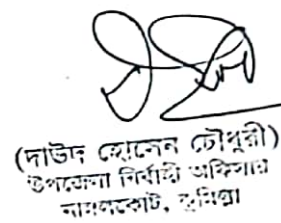 (দাউদ হোসেন চৌধুরী)
উপজেলা নির্বাহী অফিসার
নাঙ্গলকোট, কুমিল্লা